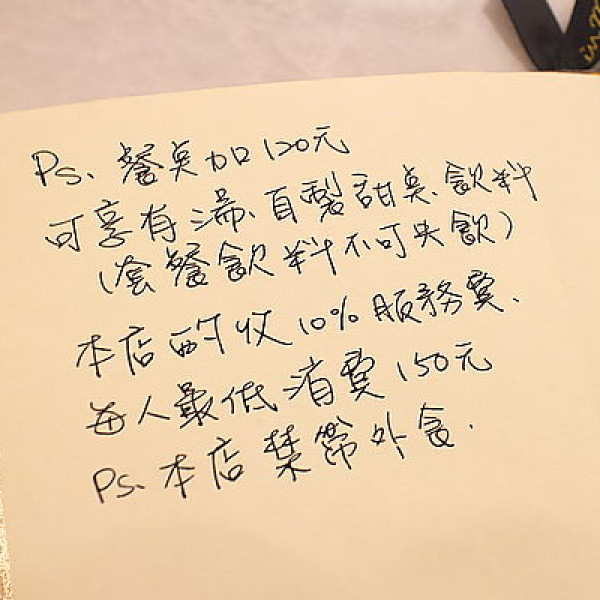 Ps、餐點加120元
可享有湯、自製甜點、飲料
(套餐飲料不可失飲)
本店酌收10%服務費、
每人最低消費150元
Ps、本店禁帶外食、